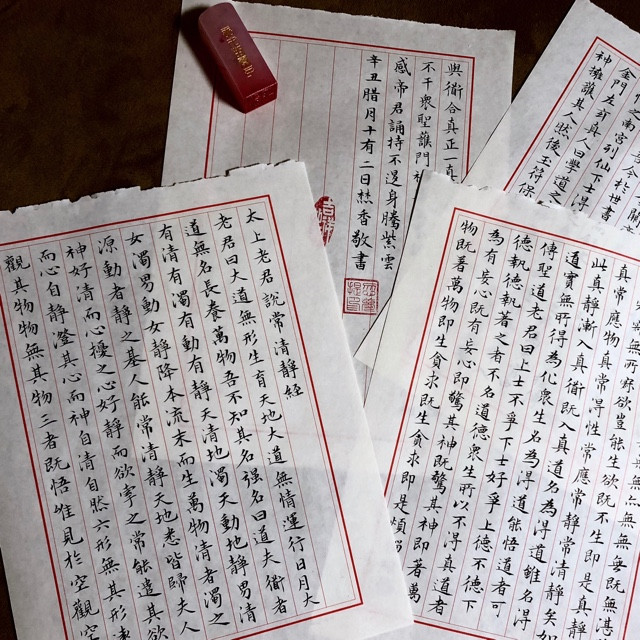 之南宮列仙下士得
今於世書
金門左玄真人曰學道之
神擁護其人然後玉符保
與衜合真正一真
不干衆聖護門
感帝君誦持不退身騰紫雲
辛丑腊月十有二日爇香敬書
無無既無湛
無所寂欲豈能生欲既不生即是真靜
真常應物真常得性常應常靜常清靜矣如
此真靜漸入真衜既入真道名為得道雖名得
道實無所得為化衆生名為得道能悟道者可
傳聖道老君曰上士不爭下士好爭上德不德下
德執德執著之者不名道德衆生所以不得真道者
為有妄心既有妄心即驚其神既驚其神即著萬
物既著萬物即生貪求既生貪求即是煩
太上老君說常清靜經
老君曰大道無形生育天地大道無情運行日月大
道無名長養萬物吾不知其名强名曰道夫衜者
有清有濁有動有靜天清地濁天動地靜男清
女濁男動女靜降本流末而生萬物清者濁之
源動者靜之基人能常清靜天地悉皆歸夫人
神好清而心擾之心好靜而欲牽之常能遣其欲
而心自靜澄其心而神自清自然六形無其形遠
觀其物物無其物三者既悟唯見於空觀空